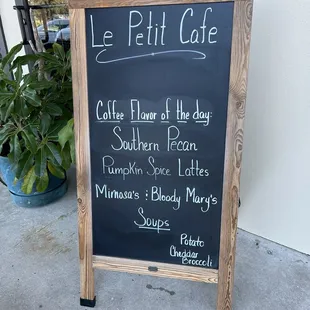 Le Petit Cafe
Coffee Flavor of the day:
Southern Pecan
Pumpkin Spice Lattes
Mimosa's : Bloody Mary's
Soups
Potato
Cheddar
Broccoli